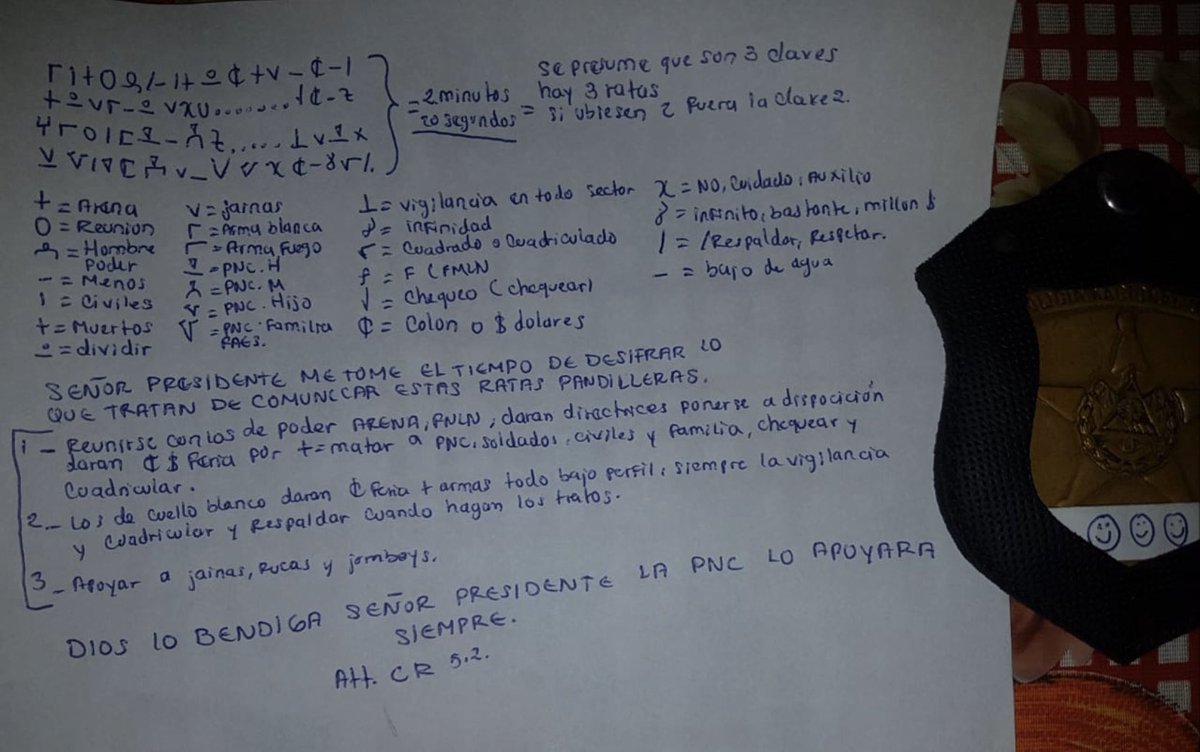 = 2 minutos
20 segundos =
se presume que son 3 claves
hay 3 ratas
si ubiesen 2 fuera la clave 2.
+ = Arena
O = Reunion
= Hombre
Poder
- = Menos
ı = Civiles
+ = Muertos
= dividir
v = jainas
= Arma blanca
= Arma Fuego
= PNC. H
= PNC. M
= PNC. Hijo
= PNC. Familia
FAES.
⊥ = vigilancia en todo sector
= infinidad
= Cuadrado o Cuadriculado
f = F (FMLN
= Chequeo (chequear)
₵ = Colon o $ dolares
X = NO, Cuidado, Auxilio
= infinito, bastante, millon $
/ = /Respaldar, Respetar.
- = bajo de agua
SEÑOR PRESIDENTE ME TOME EL TIEMPO DE DESIFRAR LO
QUE TRATAN DE COMUNICAR ESTAS RATAS PANDILLERAS.
1 - Reunirse con los de poder ARENA, FMLN, daran directrices ponerse a disposición
daran ₵ $ feria por += matar a PNC, soldados, civiles y familia, chequear y
Cuadricular.
2.- Los de cuello blanco daran ₵ feria + armas todo bajo perfil, siempre la vigilancia
y Cuadricular y Respaldar cuando hagan los tratos.
3 - Apoyar a jainas, Rucas y jomboys.
DIOS LO BENDIGA SEÑOR PRESIDENTE LA PNC LO APOYARA
SIEMPRE.
Att. CR 5.2.